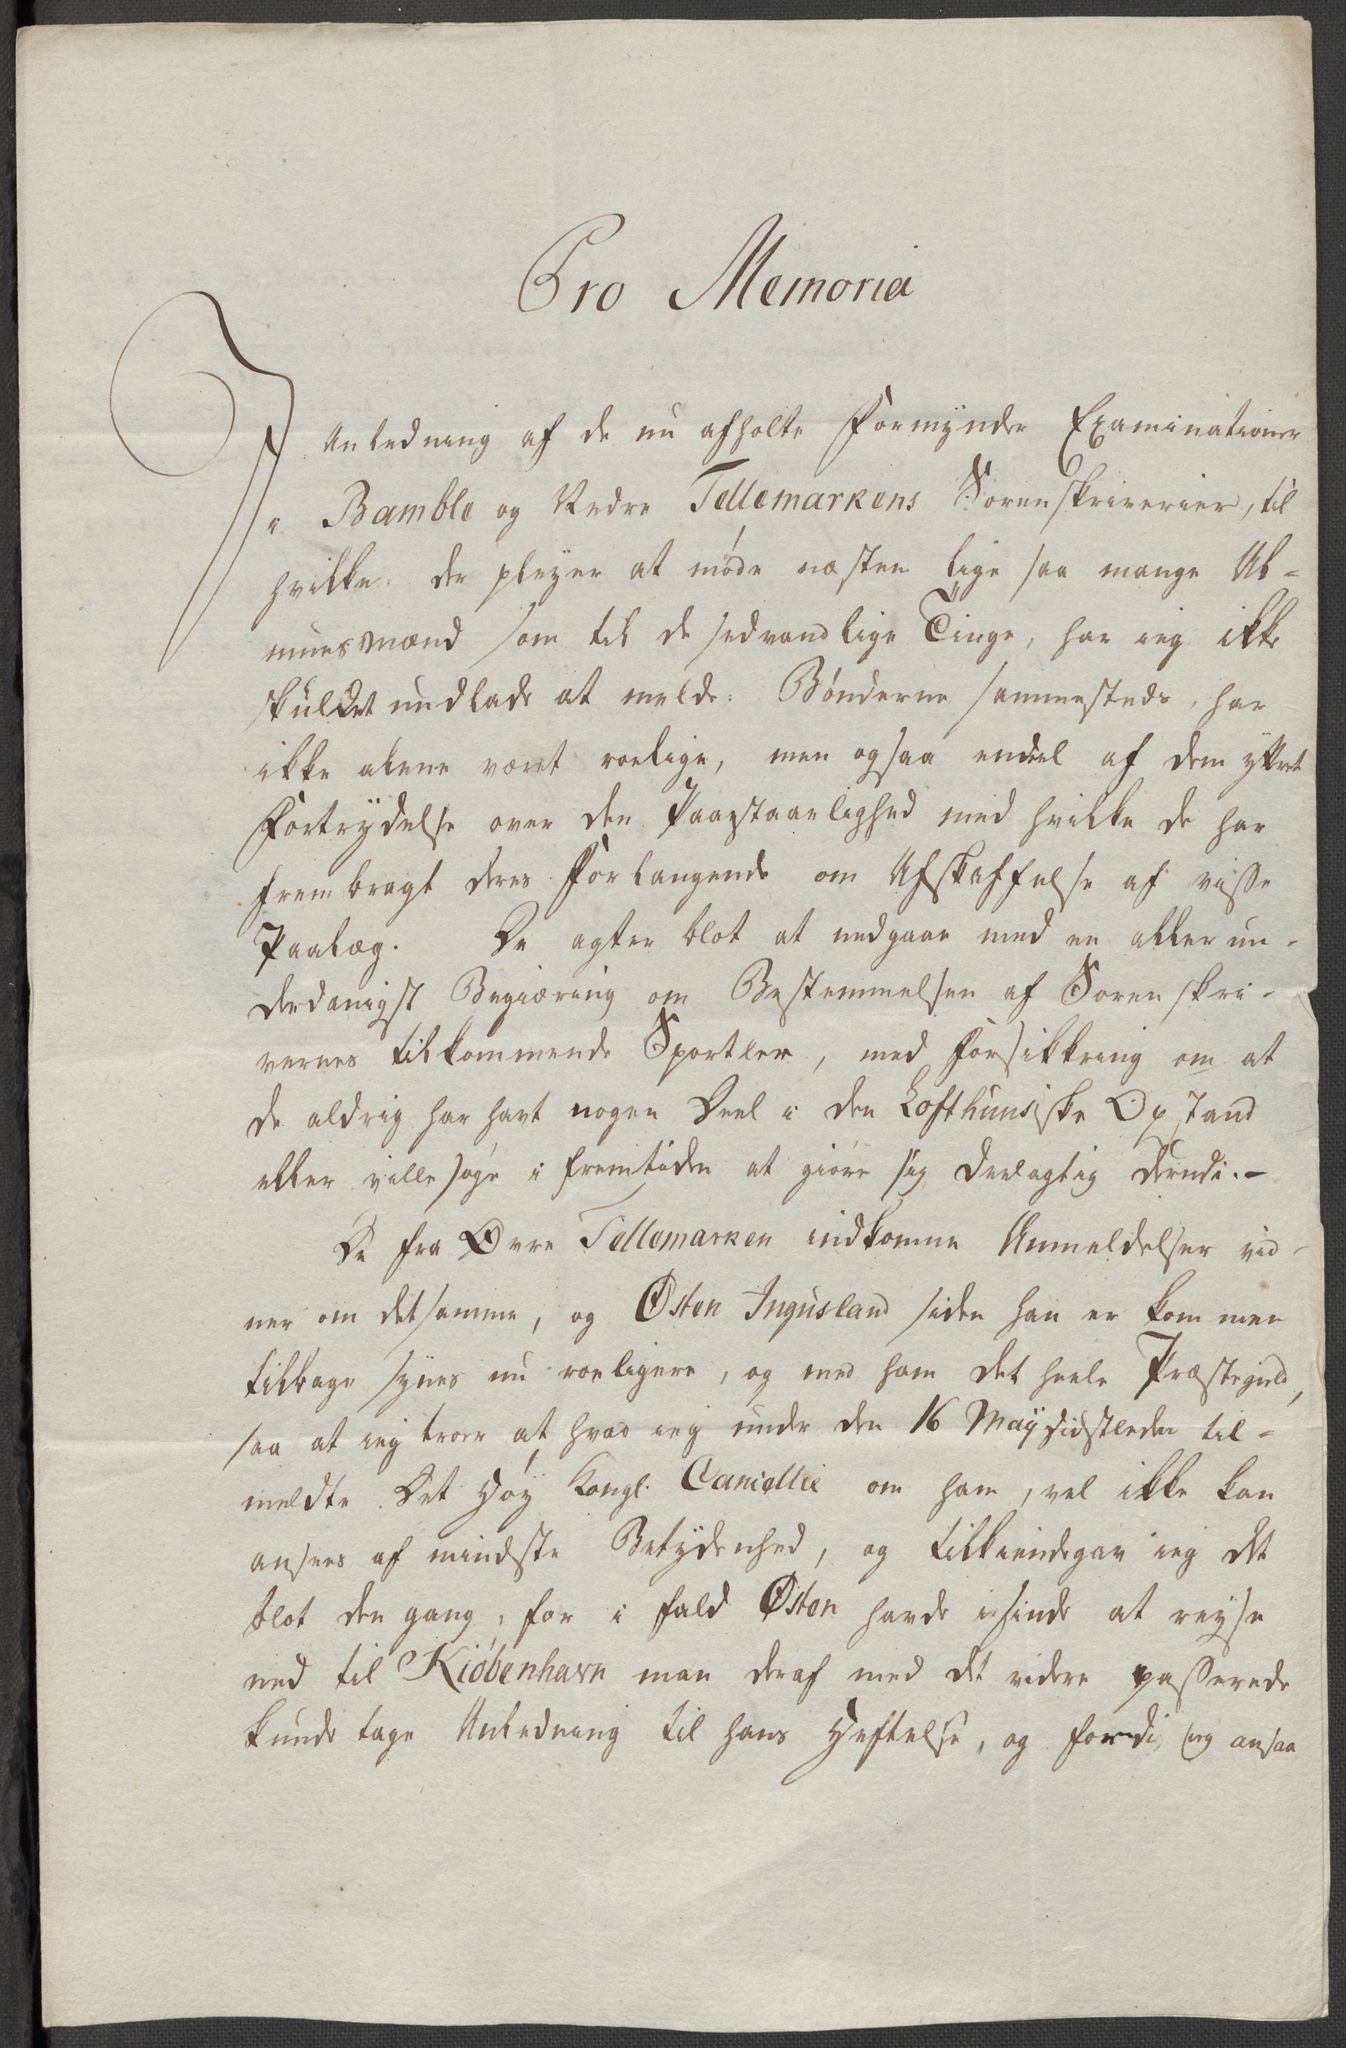 Pro Memoria
I Anledning af de nu afholte Formynder Examinationer
i Bamble og Nedre Tellemarkens Sorenskriverier, til
hvilke der pleyer at møde næsten lige saa mange Al-
muesmænd som til de sedvandlige Tinge, har ieg ikke
skullet undlade at melde: Bønderne sammesteds, har
ikke alene været roelige, men ogsaa endeel af dem yttret
Fortrydelse over den Paastaaelighed med hvilke de har
frembragt deres Forlangende om Afskaffelse af visse
Paalæg. De agter blot at nedgaae med en allerun-
derdanigst Begiæring om Bestemmelsen af Sorenskri-
vernes tilkommende Sportler, med Forsikkring om at
de aldrig har havt nogen Deel i den Lofthuusiske Opstand
eller ville søge i fremtiden at giøre sig deelagtig derudi.-
De fra Øvre Tellemarken indkomne Anmeldelser vid-
ner om det samme, og Østen Ingusland siden han er kommen
tilbage synes nu roeligere, og med ham det heele Præstegield,
saa at ieg troer at hvad ieg under den 16 Maÿ sidstleden til-
meldte Det Høy Kongl. Cancellie om ham, vel ikke kan
ansees af mindste Betydenhed, og tilkiendegav ieg det
blot den gang, for i fald Østen havde isinde at reyse
ned til Kiøbenhavn man deraf med det videre passerede
kunde tage Anledning til hans Heftelse, og fordi ieg ansaa